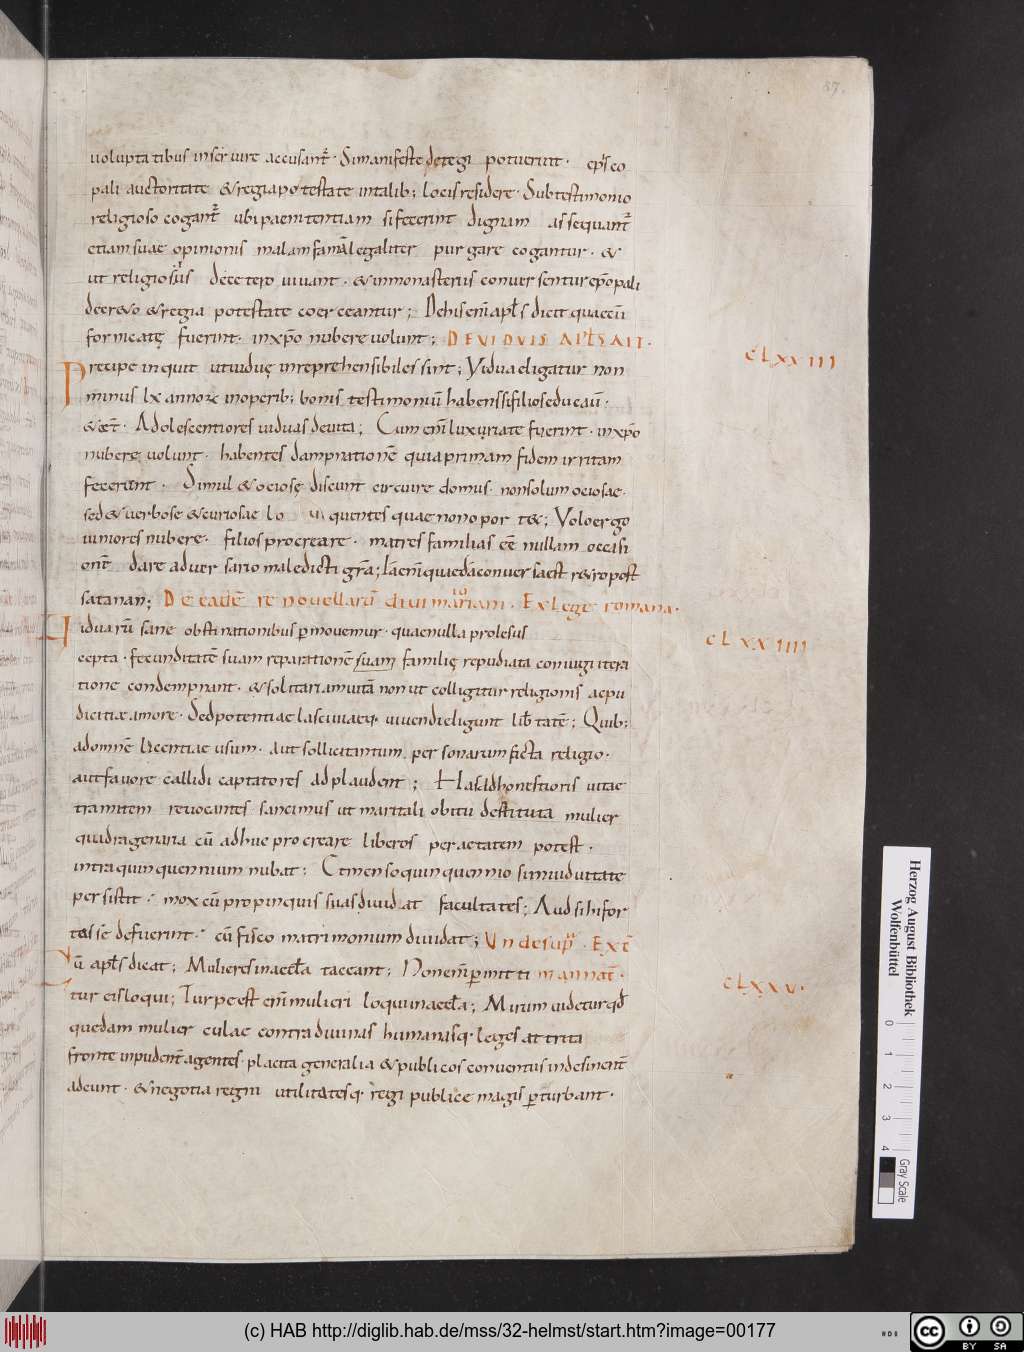 87.
uoluptatibus inseruire accusant᷑. Simanifeste detegi potuerint. ep̄sco
pali auctoritate &regiapotestate intalib; locisresidere. Subtestimonio
religioso cogant᷑ ubipaenitentiam sifecerint dignam assequant᷑
etiamsuae opinionis malamfamālegaliter purgare cogantur. &
ut religiosius decetero uiuant. &inmonasteriis conuersentur ep̄opali
decr&o &regia potestate coerceantur; Dehisenī apłs dicit quaecū
fornicatę fuerint. inxp̄o nubere uolunt; DEVIDVIS APŁS AIT.
CLXXIII
Precipe inquit utuiduę inreprehensibiles sint; Vidua eligatur non
minus lx annorū inoperib; bonis testimoniū habens sifilios educauit.
&cet̄. Adolescentiores uiduas deuita; Cum enī luxuriate fuerint. inxp̄o
nubere uolunt. habentes dampnationē quiaprimam fidem irritam
fecerunt. Simul &ociosę discunt circuire domus. nonsolum ociosae.
sed&uerbose &curiosae lo quentes quae nonopor t&; Voloergo
iuniores nubere. filios procreare. matres familias eē nullam occasi
onē dare aduersario maledicti grā; Iāenī quedāconuersaest retropost
satanan;
De eadē re nouellarū diui maioriani. Exlege romana.
CLXXIIII
Viduarū sane obstinationibus pmouemur. quaenulla prolesus
cepta. fecunditatē suam reparationē suam familię repudiata coniugii itera
tione condempnant. &solitariamuitā non ut colligitur religionis aepu
dicitiæ amore. Sedpotentiae lasciuiaeq; uiuendieligunt lib̄tatē; Quib;
adomnē licentiae usum. aut sollicitantum personarum ficta religio.
autfauore callidi captatores adplaudent; Hasadhonestioris uitae
tramitem reuocantes sancimus ut maritali obitu destituta mulier
quadragenaria cū adhuc procreare liberos peraetatem potest.
intraquinquennium nubat; Emenso quinquennio si inuiduitate
persistit. mox cū propinquis suas diuidat facultates; Aud sihifor
tasse defuerint. cū fisco matrimonium diuidat; Vn desup̄. Ext̄
CLXXV.
Cū apłs dicat; Mulieres inaeccła taceant; Nonenī pmitti
tur eis loqui; Turpe est enī mulieri loqui inaeccła; Mirum uidetur qđ
quedam mulierculae contra diuinas humanasq; leges attrita
fronte inpudent̄ agentes. placita generalia &publicos conuentus indesinent̄
adeunt. &negotia regni utilitatesq; regi publice magis pturbant.
Herzog August Bibliothek
Wolfenbüttel
0 1 2 3 4
Gray Scale
(c) HAB http://diglib.hab.de/mss/32-helmst/start.htm?image=00177
cc BY SA